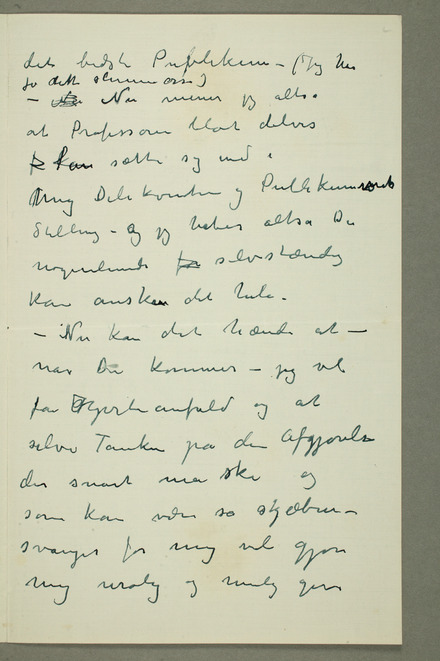 det bedste Publikum – (Jeg har
jo dette slemme også)
– Nu mener jeg altså
at Professoren blot delvis
kan sætte sig ind i
Mig Delikventen og Publikummets
Stilling – og jeg haber altsa De
nogenlunde selvstændig
kan anskue det hele.
– Nu kan det hænde at –
nar De kommer – jeg vil
faa Hjerteanfald og at
selve Tanken på den Afgjørelse
der snart ma ske og
som kan være så skjæbne–
svanger for mig vil gjøre
mig urolig og mulig gøre